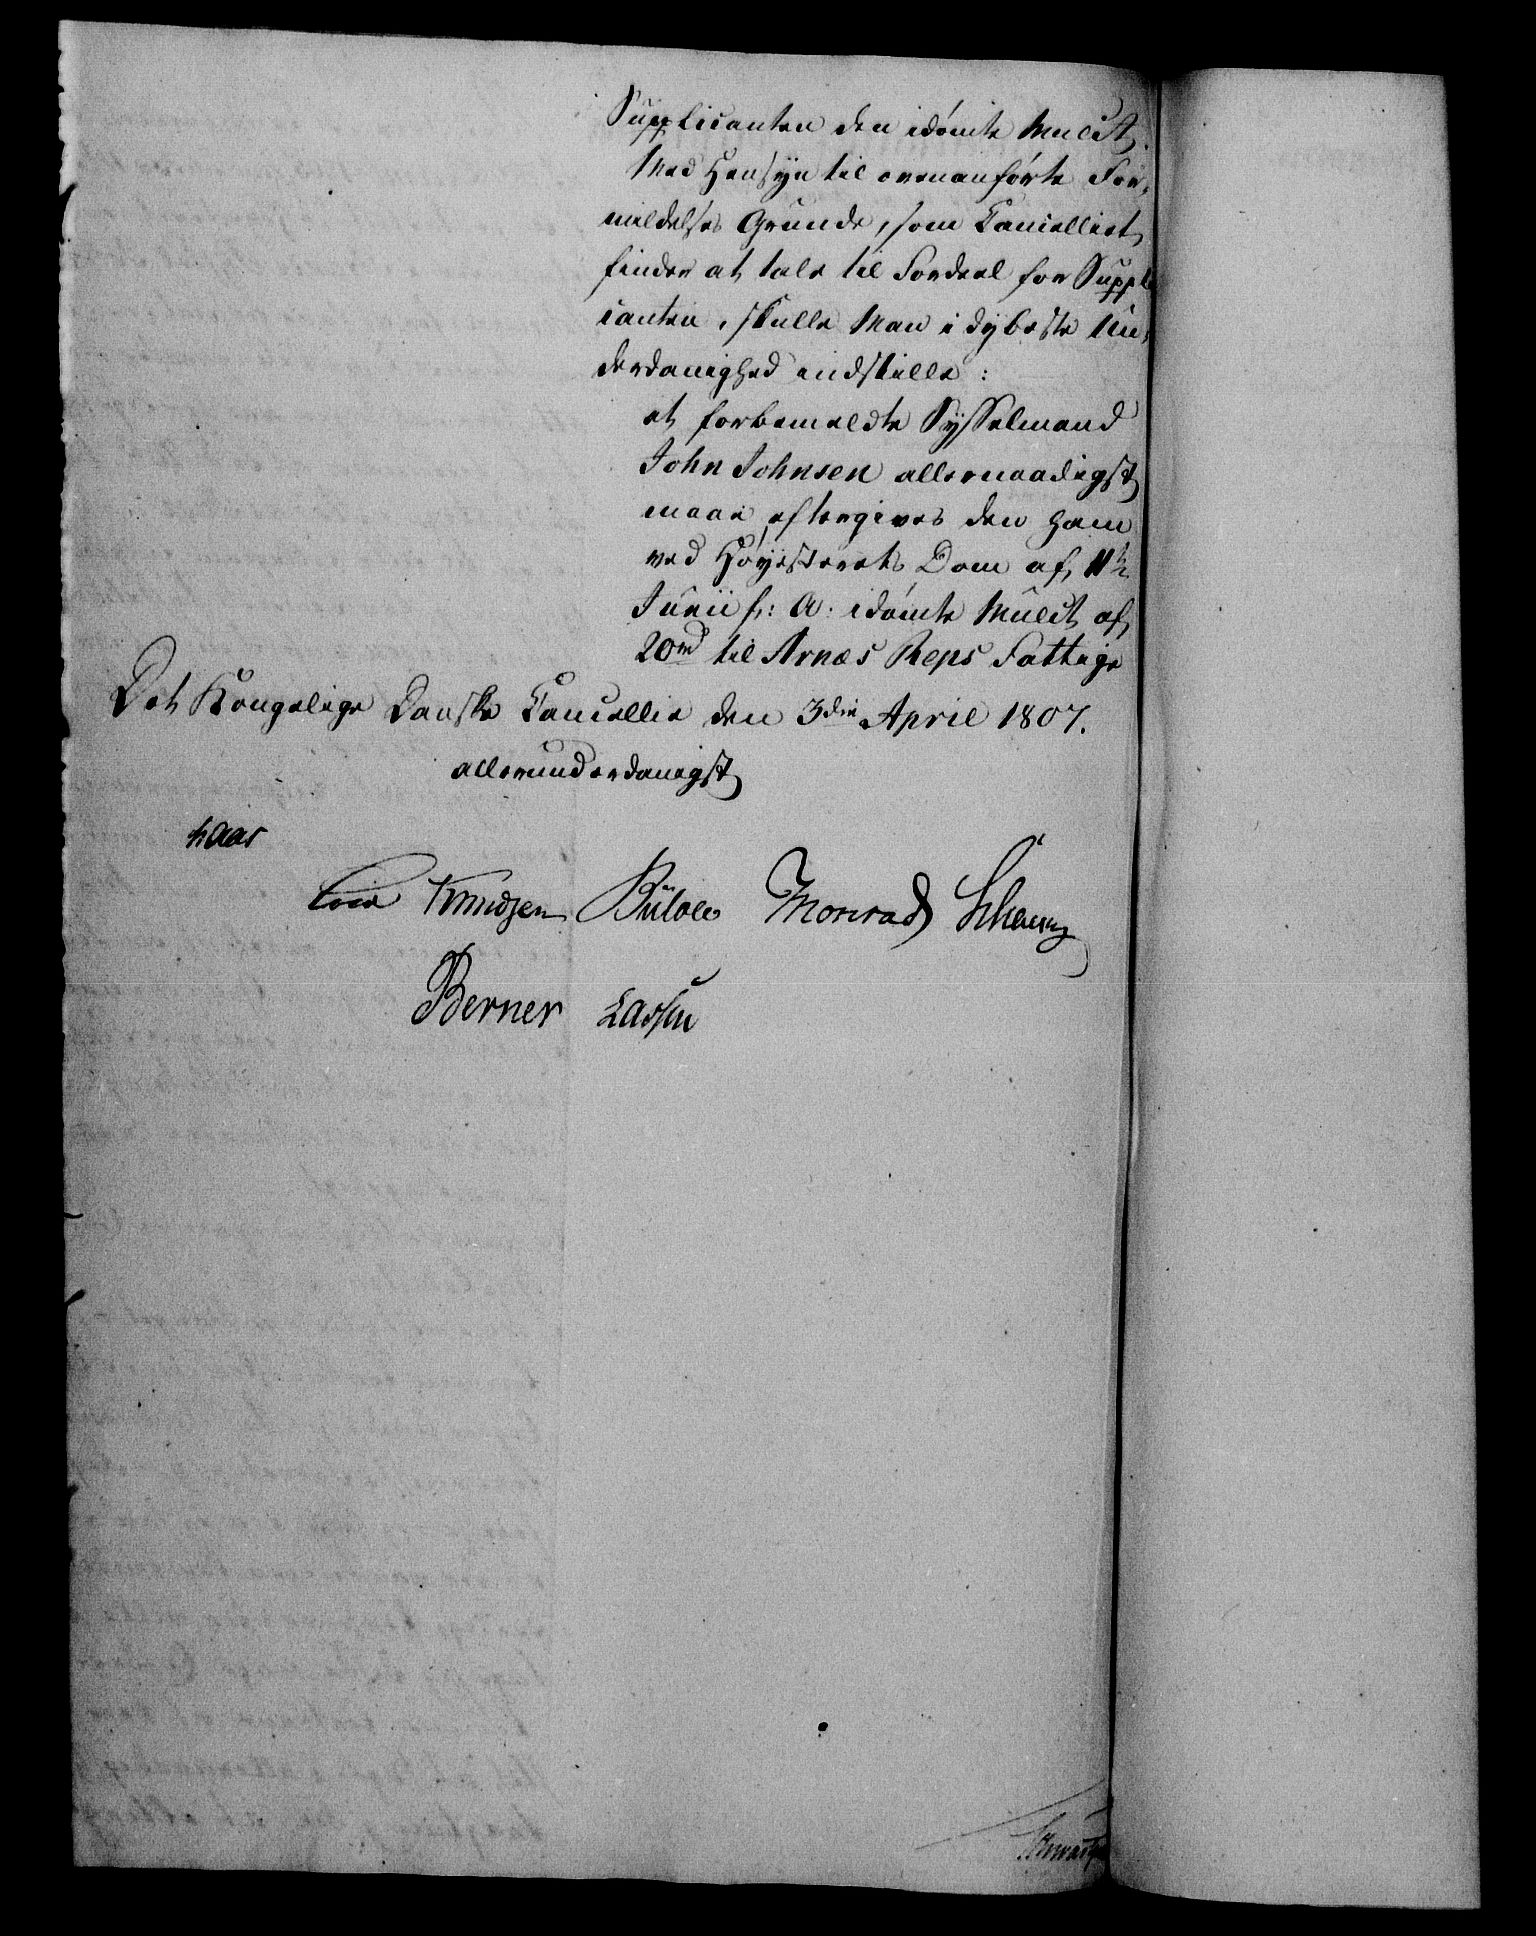 Supplicanten den idømte Mulct.
Med Hensyn til ovenanførte For-
mildelses Grunde, som Cancelliet
finder at tale til Fordeel for Suppli
canten, skulle Man i dybeste Un-
derdanighed indstille:
at forbemeldte Sysselmand
John Johnsen allernaadigst
maae eftergives den ham
ved Høyesterets Dom af 11te
Junii f: A: idømte Mulct af
20rd til Arnæs Reps Fattige
Det Kongelige Danske Cancellie den 3die April 1807.
allerunderdanigst
Kaas
Cold Knudsen Bülow Monrad Schønning
Berner Lassen